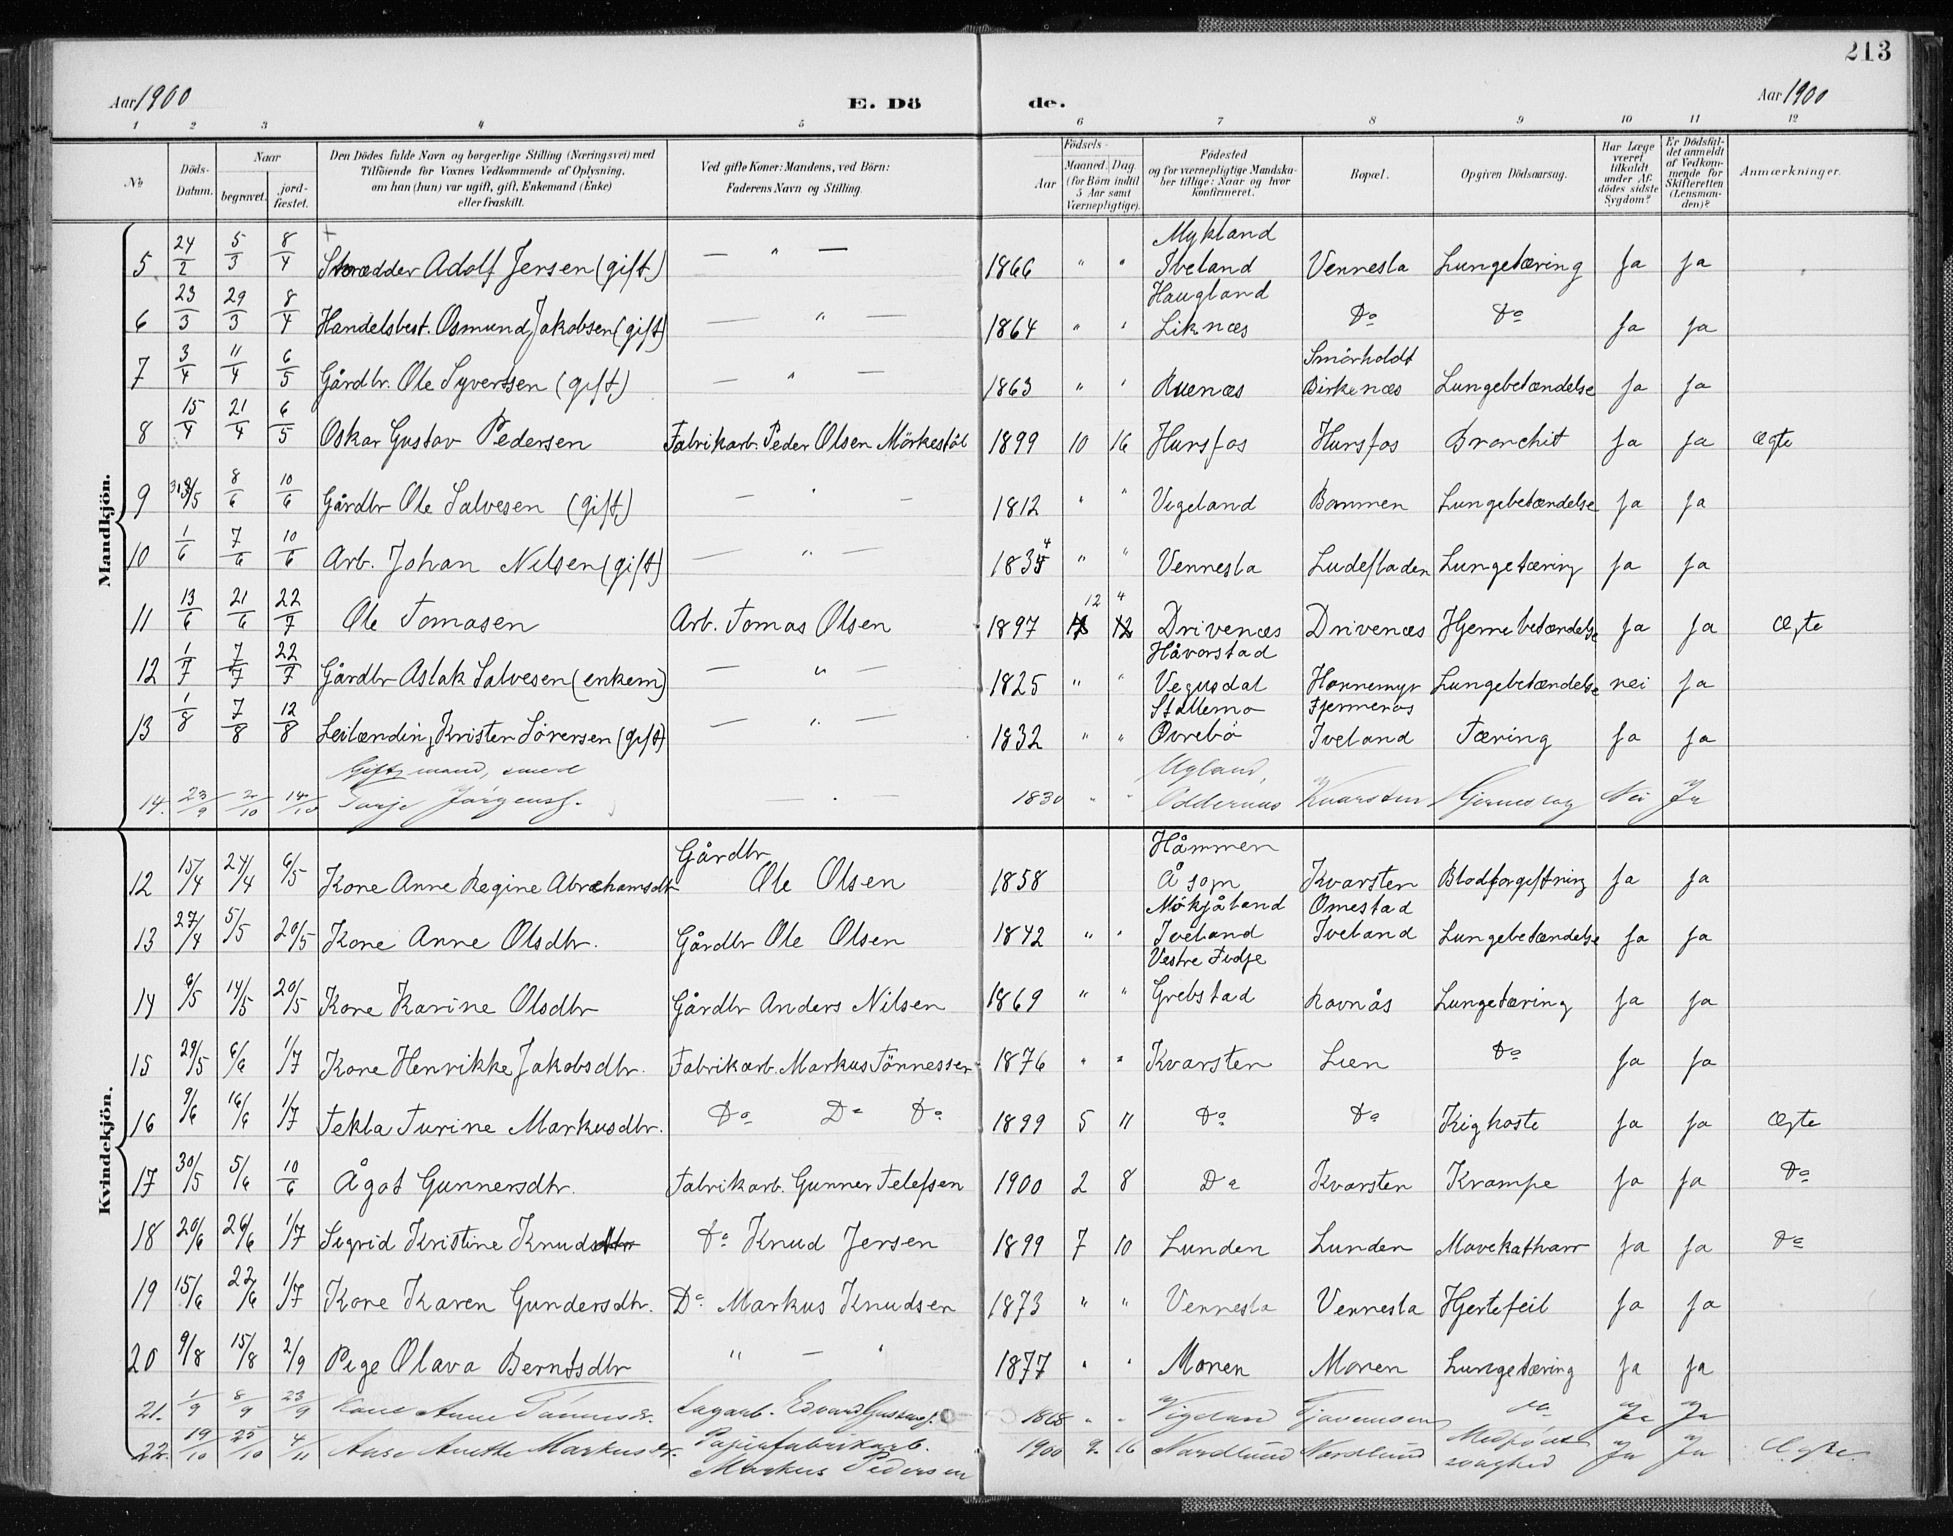 213
Aar 1900 E. Dö de. Aar 1900
1 2 3 4 5 6 7 8 9 10 11 12
No Döds-Datum. Naar begravet. jord-fæstet. Den Dödes fulde Navn og borgerlige Stilling (Næringsvei) med Tilföiende for Voxnes Vedkommende af Oplysning, om han (hun) var ugift, gift, Enkemand (Enke) eller fraskilt. Ved gifte Koner: Mandens, ved Börn: Faderens Navn og Stilling. Födsels- Aar Maaned. Dag. (for Börn indtil 5 Aar samt Værnepligtige). Födested og for værnepligtige Mandska-ber tillige: Naar og hvor konfirmeret. Bopæl. Opgiven Dödsaarsag. Har Læge været tilkaldt under Af-dödes sidste Sygdom? Er Dödsfal-det anmeldt af Vedkom-mende for Skifteretten (Lensman-den)? Anmærkninger.
Mandkjön.
5 24/2 5/3 8/4 Skrædder Adolf Jensen (gift) — " — 1866 " " Mykland Iveland Vennesla Lungetæring Ja Ja
6 23/3 29/3 8/4 Handelsbest. Osmund Jakobsen (gift) — " — 1864 " " Haugland Liknæs Do Do Ja Ja
7 3/4 11/4 6/5 Gårdbr. Ole Syvertsen (gift) — " — 1863 " " Ruenæs Smörholdt Birkenæs Lungebetændelse Ja Ja
8 15/4 21/4 6/5 Oskar Gustav Pedersen Fabrikarb. Peder Olsen Mörkestöl 1899 10 16 Hunsfos Hunsfos Bronchit Ja Ja Ægte
9 31/5 8/6 10/6 Gårdbr Ole Salvesen (gift) — " — 1812 " " Vigeland Bommen Lungebetændelse Ja Ja
10 1/6 7/6 10/6 Arb. Johan Nilsen (gift) — " — 1834 " " Vennesla Ludefladen Lungetæring Ja Ja
11 13/6 21/6 22/7 Ole Tomasen Arb. Tomas Olsen 1897 12 4 Drivenæs Drivenæs Hjernebetændelse Ja Ja Ægte
12 1/7 7/7 22/7 Gårdbr Aslak Salvesen (enkem) — " — 1825 " " Håvorstad Vegusdal Honnemyr Lungebetændelse nei Ja
13 1/8 7/8 12/8 Leilænding Kristen Sörensen (gift) — " — 1832 " " Stallemo Övrebö Fjermeros Iveland Tæring Ja Ja
14. 23/9 2/10 14/10 Gift mand, smed Tarje Jørgens. — " — 1830 " " Ugland, Oddernæs Kvarsten Hjerneslag Nei Ja
Kvindekjön.
12 15/4 24/4 6/5 Kone Anne Regine Abrahamsdtr Gårdbr Ole Olsen 1858 Håmmen Å sogn Kvarsten Blodforgiftning Ja Ja
13 27/4 5/5 20/5 Kone Anne Olsdtr. Gårdbr Ole Olsen 1842 " " Mökjåland Iveland Omestad Iveland Lungebetændelse Ja Ja
14 6/5 14/5 20/5 Kone Karine Olsdtr Gårdbr Anders Nilsen 1869 " " Vestre Fidje Grebstad Ravnås Lungetæring Ja Ja
15 29/5 6/6 1/7 Kone Henrikke Jakobsdtr. Fabrikarb. Markus Tönnessen 1876 " " Kvarsten Lien Do Ja Ja
16 9/6 16/6 1/7 Tekla Turine Markusdtr. Do Do Do 1899 5 11 Do Do Kighoste Ja Ja Ægte
17 30/5 5/6 10/6 Ågot Gunnersdtr. Fabrikarb. Gunner Telefsen 1900 2 8 Do Kvarsten Krampe Ja Ja Do
18 20/6 26/6 1/7 Sigrid Kristine Knudsdtr Do Knud Jensen 1899 7 10 Lunden Lunden Mavekatharr Ja Ja Do
19 15/6 22/6 1/7 Kone Karen Gundersdtr. Do Markus Knudsen 1873 " " Vennesla Vennesla Hjertefeil Ja Ja
20 9/8 15/8 2/9 Pige Olava Berntsdtr " — " 1877 " " Monen Monen Lungetæring Ja Ja
21. 1/9 8/9 23/9 Kone Anne Edvard 1868 " " Vigeland Do Ja Ja
22. 19/10 25/10 4/11 Anette Markusdtr. Papirfabrikarb. Markus Pedersen 1900 9 16 Nordlund Nordlund Medfödt svaghed Ja Ja Ægte.